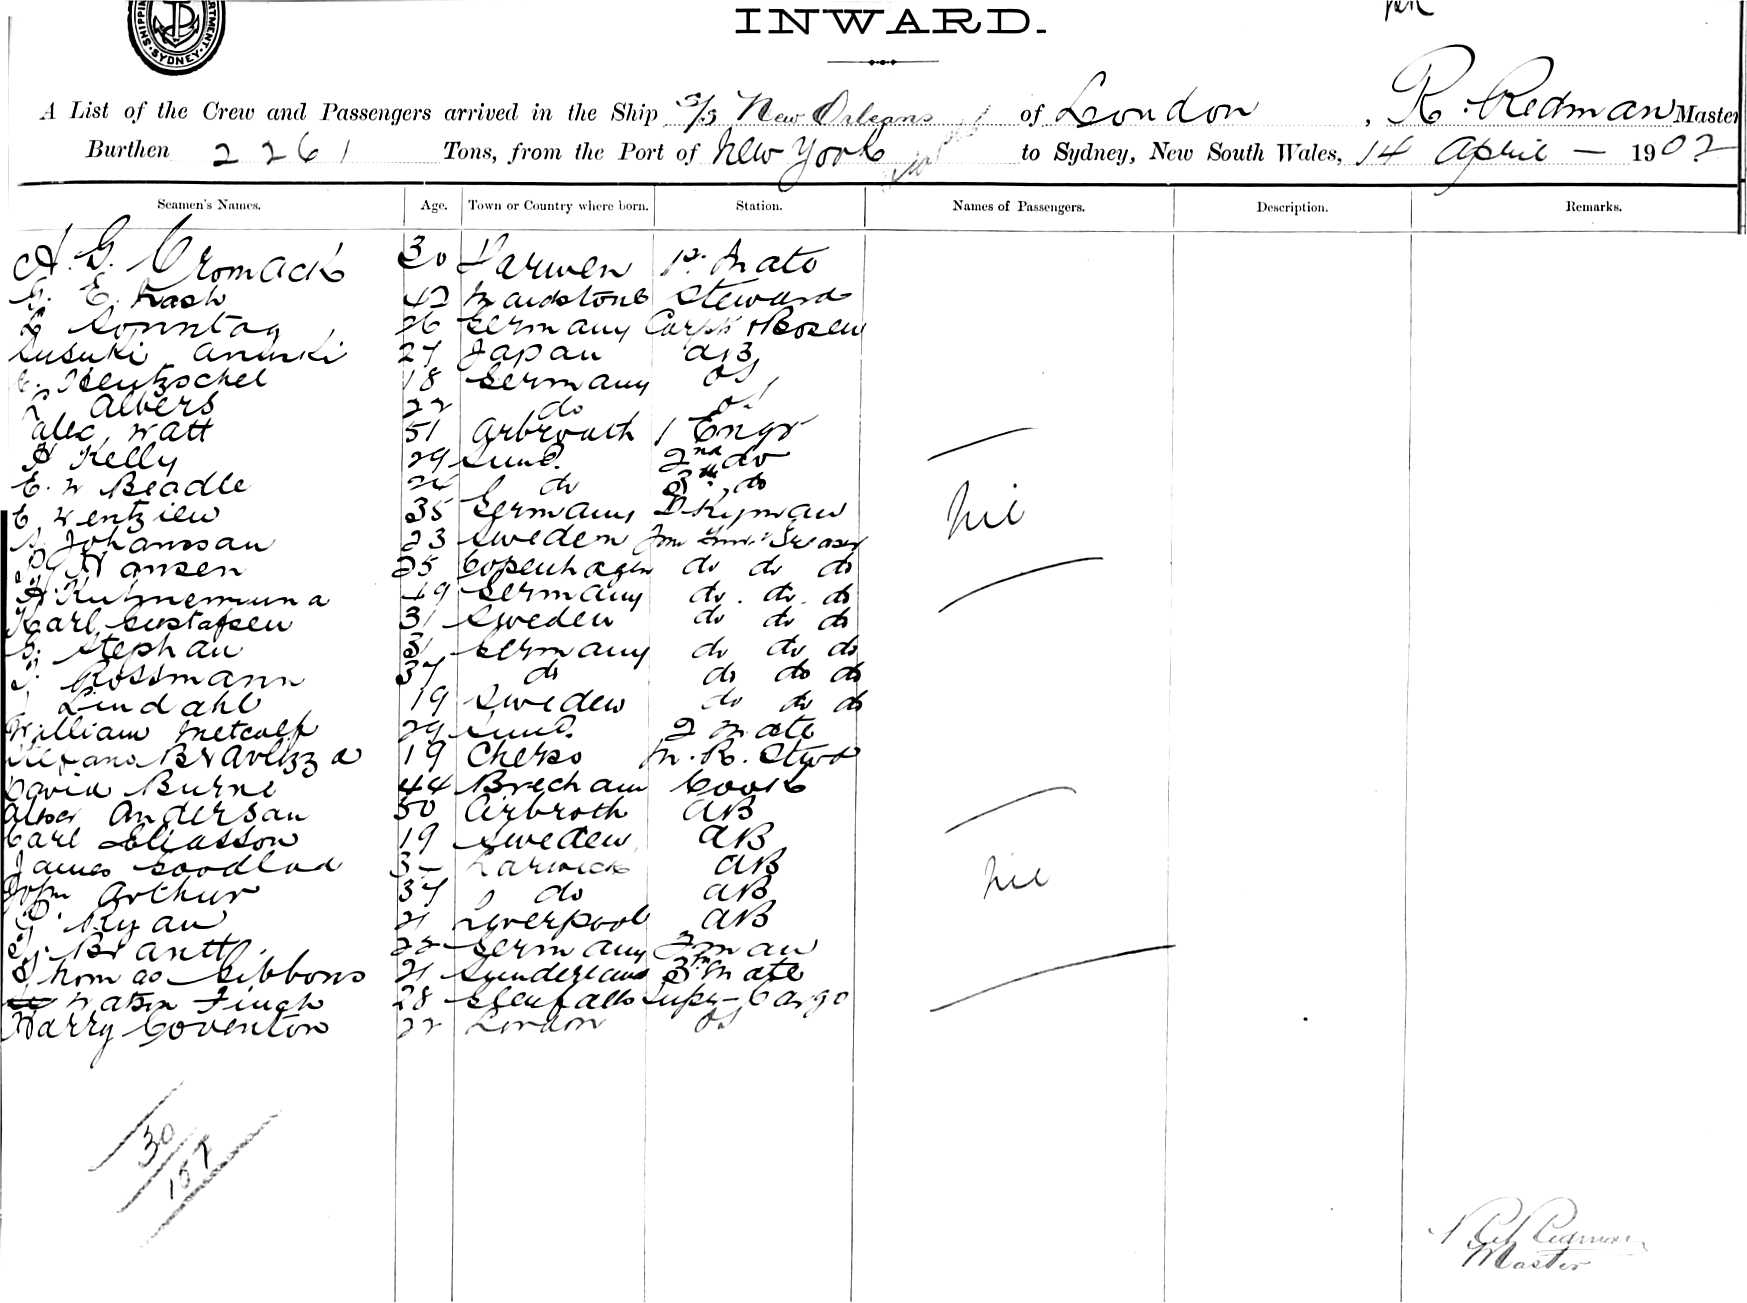 SHIPPING DEPARTMENT · SYDNEY ·
INWARD.
A List of the Crew and Passengers arrived in the Ship S/S New Orleans of London, R. Redman Master
Burthen 2261 Tons, from the Port of New York to Sydney, New South Wales, 14 April — 1902
Seamen's Names. Age. Town or Country where born. Station. Names of Passengers. Description. Remarks.
A. G. Cromack 30 Darwen 1st Mate
E. Nash 42 Maidstone Steward
Sonntag 26 Germany Carpr & Bosen
Susuki 27 Japan AB
Hentzschel 18 Germany OS
Albers 22 do OS
Alec Watt 51 Arbroath 1 Engr
H Kelly 29 Sund. 2nd do
E. W Beadle do 3rd do
E. Wentzien 35 Germany Dkyman
Johansson 23 Sweden Greaser
Hansen 25 Copenhagen do do do
H 19 Germany do. do. do
Karl Gustafsen 31 Sweden do do do
Stephan 31 Germany do do do
Rossmann 37 do do do do
Lindahl 19 Sweden do do do
William Metcalf 29 Sund. 2 Mate
19 Cherso M. R. Stwd
David Burne 44 Brechan Cook
Anderson 50 Airbroth AB
Carl Eliasson 19 Sweden AB
James Goodlad Larwick AB
John Arthur 37 do AB
Ryan 21 Liverpool AB
Brantt 22 Germany Fman
Thomas Gibbons 21 Sunderland 3rd Mate
Finch 28 Glenfalls Super-Cargo
Harry Coventon 22 London OS
Nil
Nil
30
157
Redman
Master